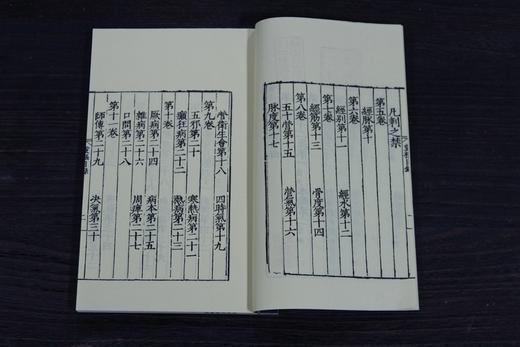 凡刺之禁
第五卷
經脈第十
第六卷
經別十一 經水第十二
第七卷
經筋第十三 骨度第十四
第八卷
五十營第十五 營氣第十六
脉度第十七
營衛生會第十八 四時氣第十九
第九卷
五邪第二十 寒熱病第二十一
癲狂病第二十二 熱病第二十三
第十卷
厥病第二十四 病本第二十五
雜病第二十六 周痺第二十七
口問第二十八
第十一卷
師傳第二十九 決氣第三十